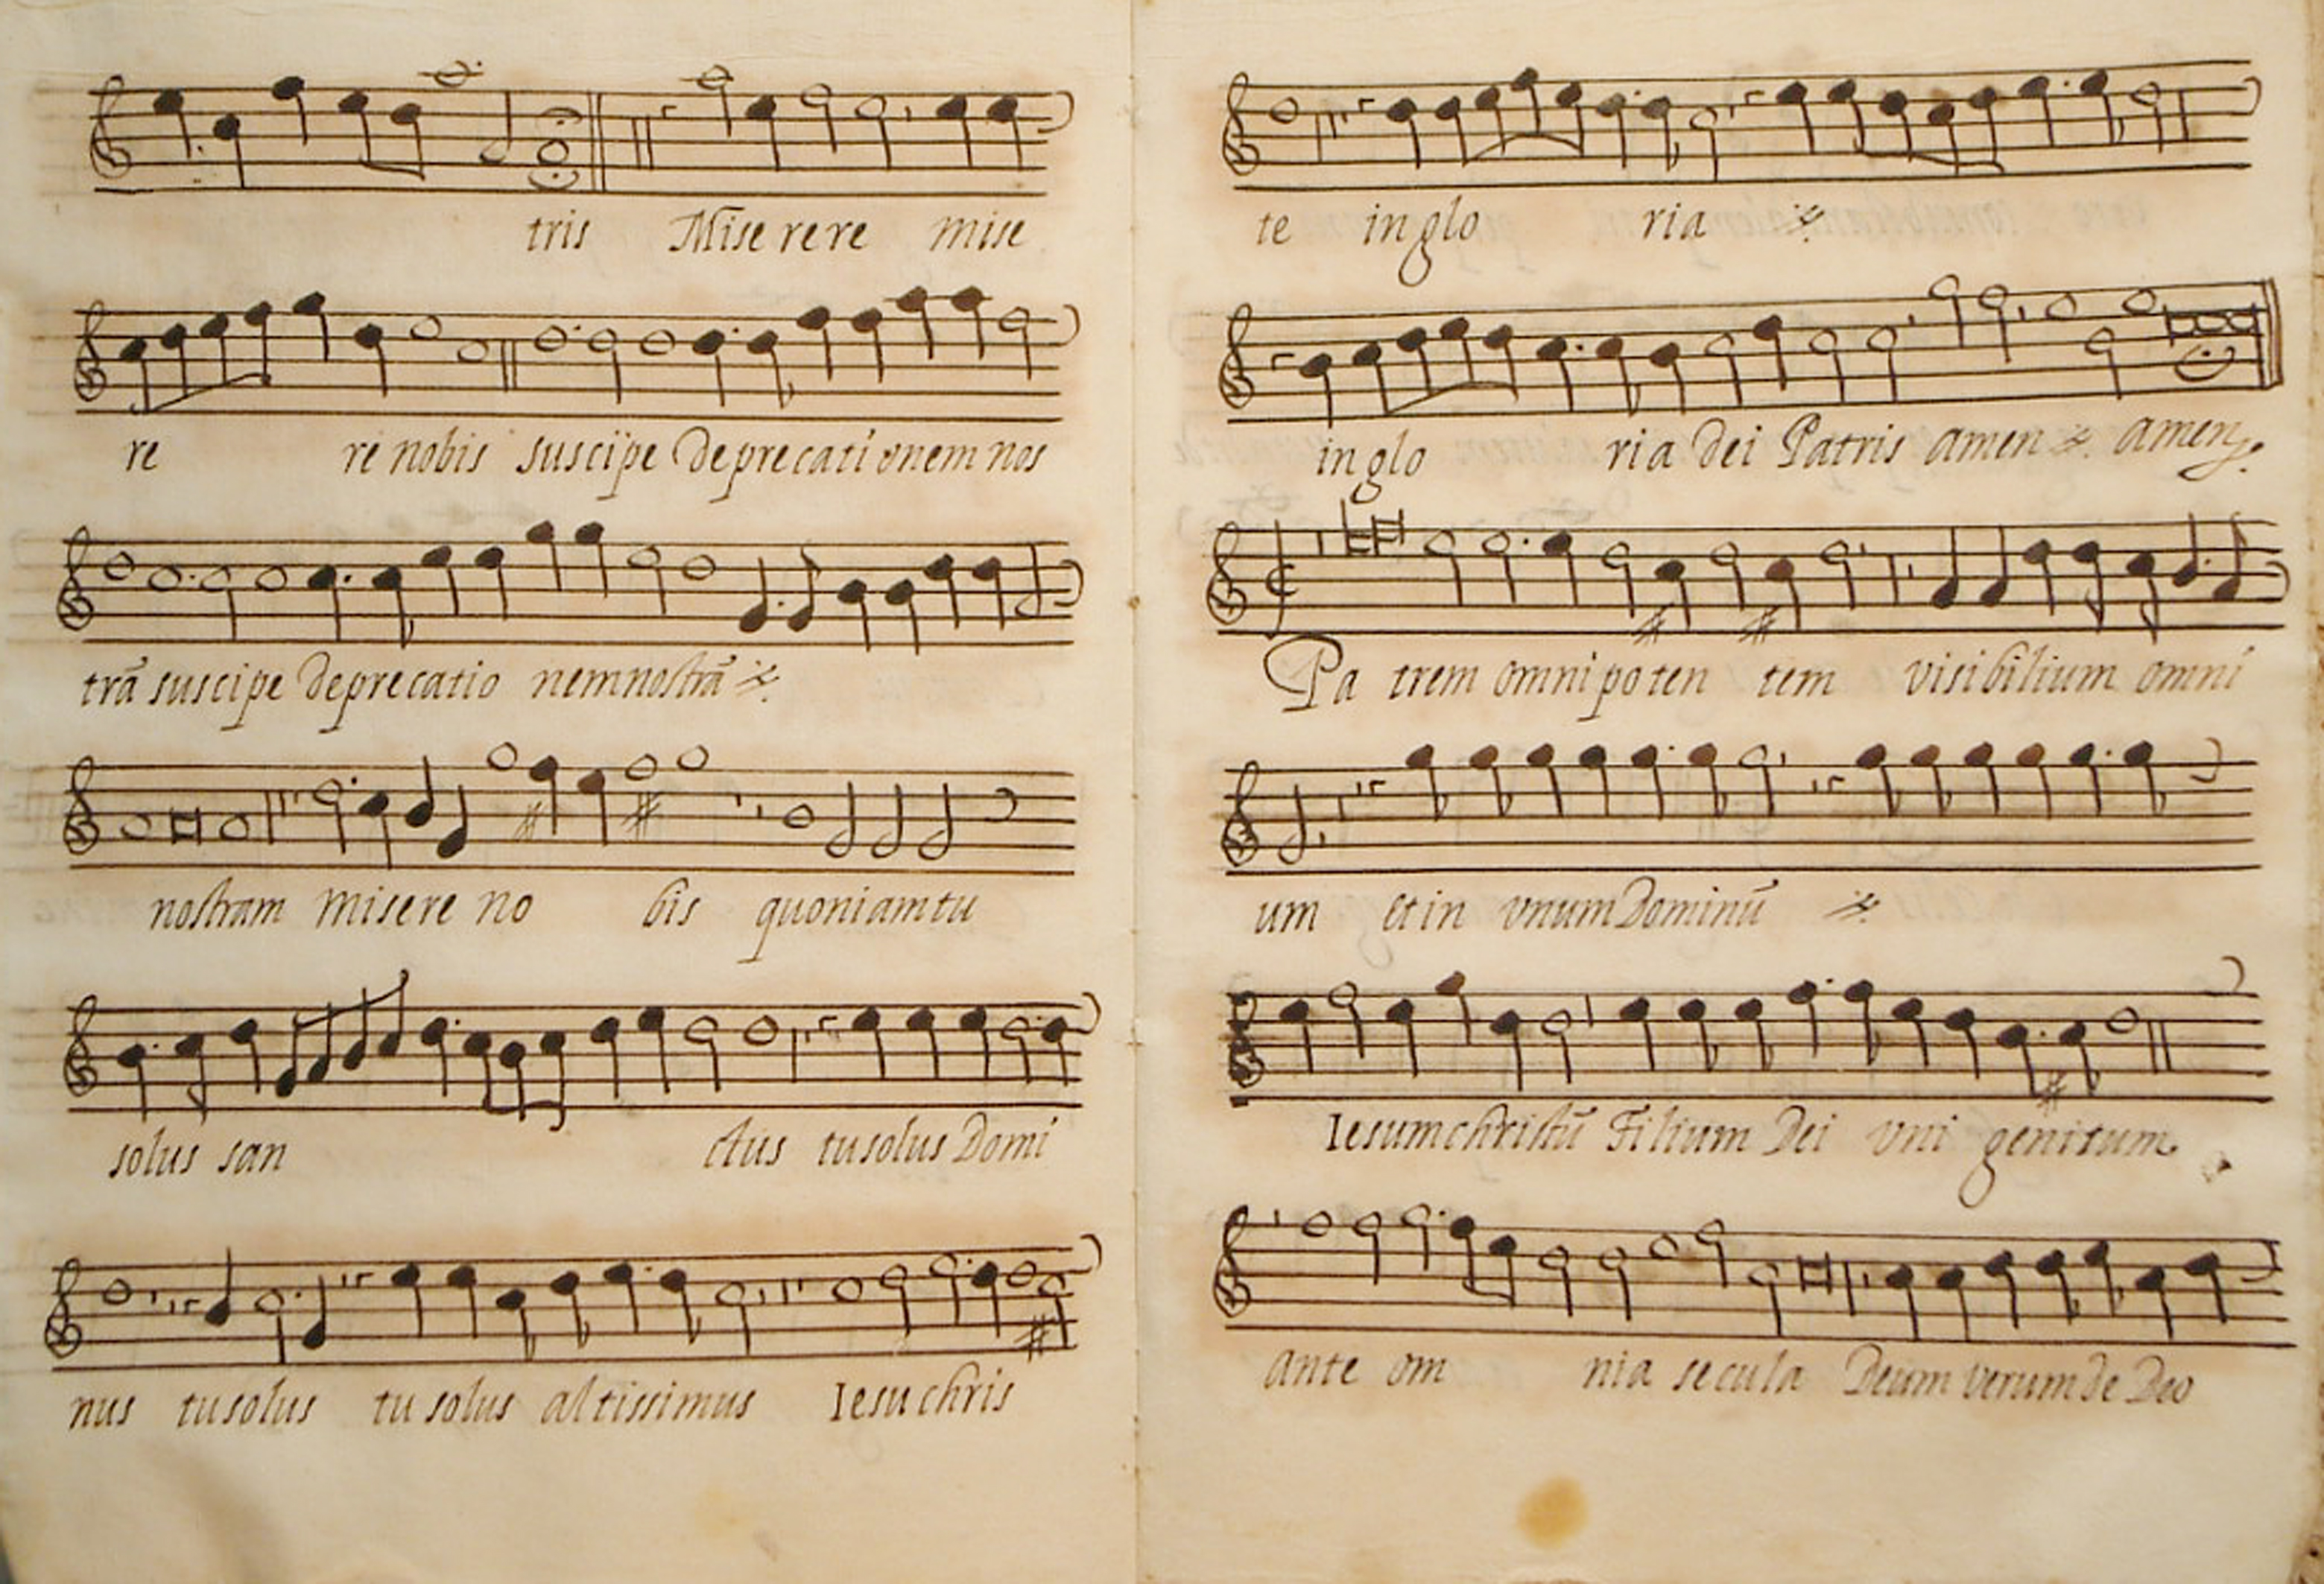 tris Miserere mise
re re nobis suscipe deprecationem nos
trā suscipe deprecatio nem nostrā
nostram misere no bis quoniam tu
solus san ctus tu solus Domi
nus tu solus tu solus altissimus Iesu chris
te in glo ria
in glo ria dei Patris amen amen
Pa trem omnipoten tem visibilium omni
um et in vnum Dominū
Iesum christū Filium Dei vni genitum
ante om nia secula Deum verum de Deo